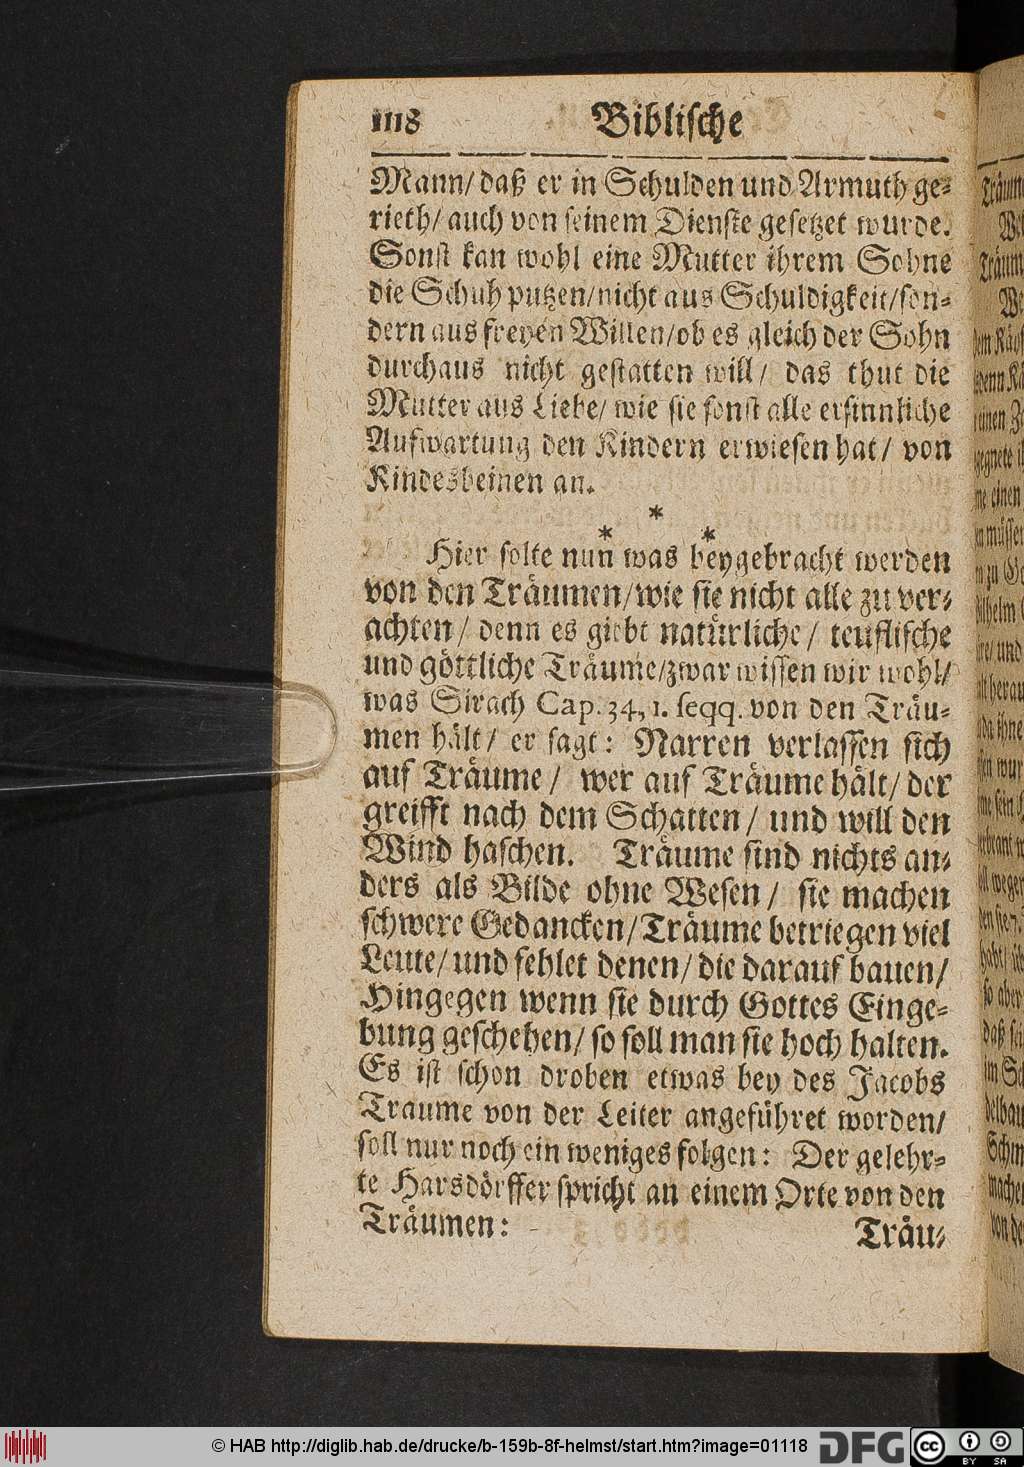 1118 Biblische
Mann/ daß er in Schulden und Armuth ge-
rieth/ auch von seinem Dienste gesetzet wurde.
Sonst kan wohl eine Mutter ihrem Sohne
die Schuh putzen/ nicht aus Schuldigkeit/ son-
dern aus freyen Willen/ ob es gleich der Sohn
durchaus nicht gestatten will/ das thut die
Mutter aus Liebe/ wie sie sonst alle ersinnliche
Aufwartung den Kindern erwiesen hat/ von
Kindesbeinen an.
*
* *
Hier solte nun was beygebracht werden
von den Träumen/ wie sie nicht alle zu ver-
achten/ denn es giebt natürliche/ teuflische
und göttliche Träume/ zwar wissen wir wohl/
was Sirach Cap. 34, 1. seqq. von den Träu-
men hält/ er sagt: Narren verlassen sich
auf Träume/ wer auf Träume hält/ der
greifft nach dem Schatten/ und will den
Wind haschen. Träume sind nichts an-
ders als Bilde ohne Wesen/ sie machen
schwere Gedancken/ Träume betriegen viel
Leute/ und fehlet denen/ die darauf bauen/
Hingegen wenn sie durch Gottes Einge-
bung geschehen/ so soll man sie hoch halten.
Es ist schon droben etwas bey des Jacobs
Traume von der Leiter angeführet worden/
soll nur noch ein weniges folgen: Der gelehr-
te Harsdörffer spricht an einem Orte von den
Träumen:
Träu-
© HAB http://diglib.hab.de/drucke/b-159b-8f-helmst/start.htm?image=01118
DFG
cc
BY SA